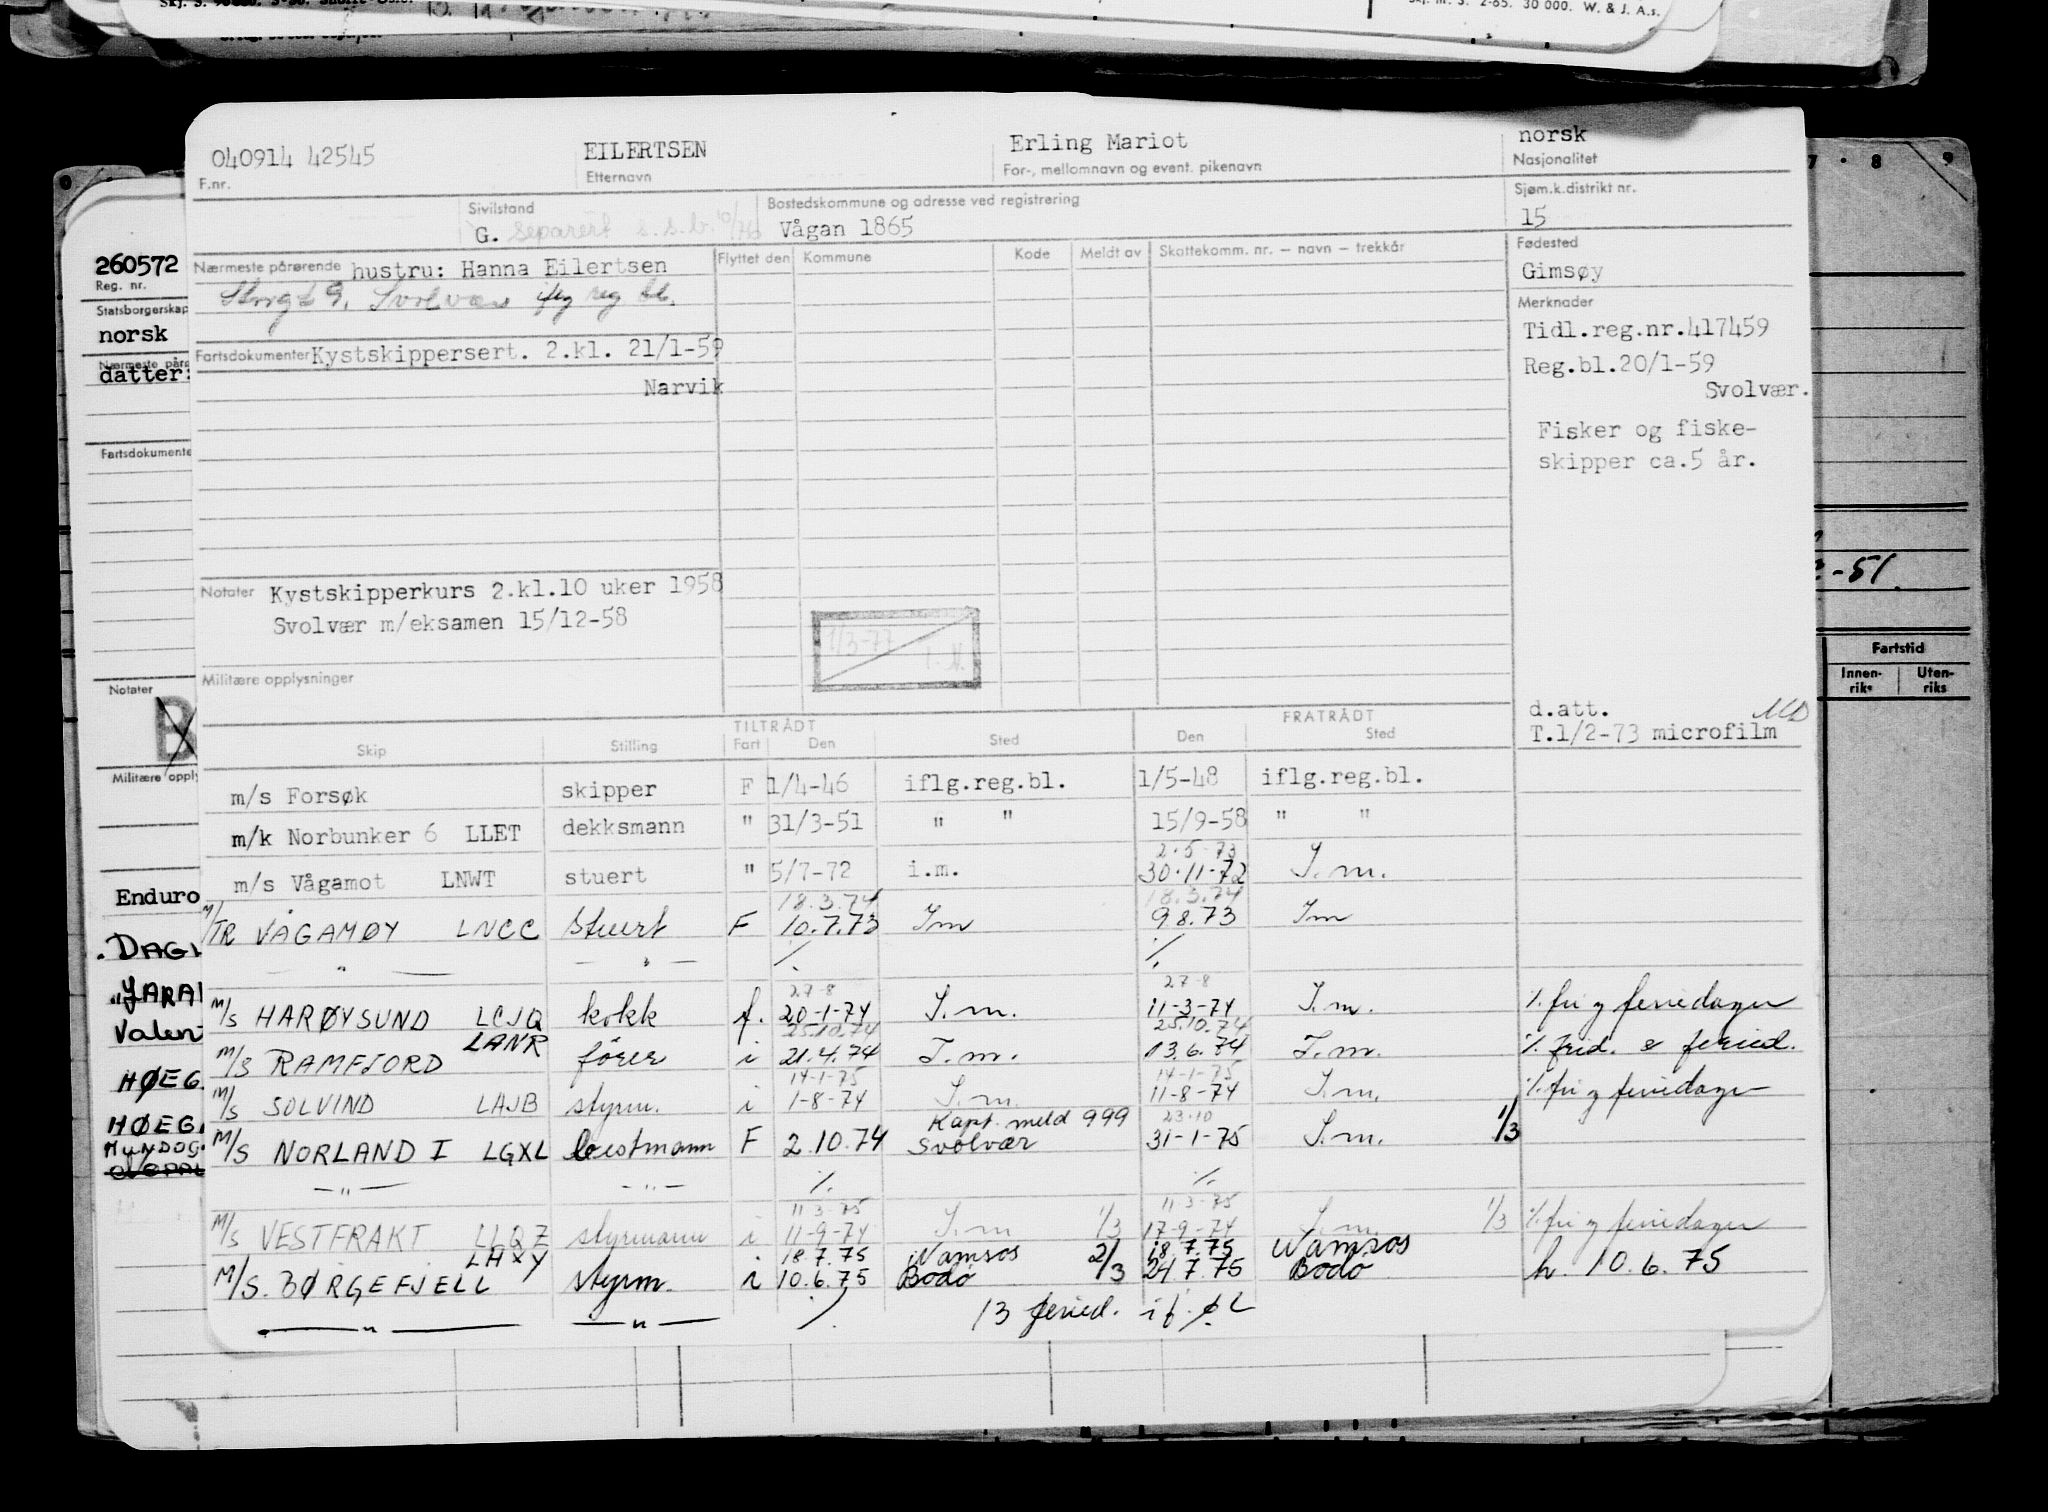 Skj. m. S. 2-65. 30 000. W. & J. A.s.
040914 42545 EILERTSEN Erling Mariot norsk
F.nr. Etternavn For-, mellomnavn og event. pikenavn Nasjonalitet
Sivilstand Bostedskommune og adresse ved registrering Sjøm.k.distrikt nr.
G. Separert s.s.b. 10/76 Vågan 1865 15
Nærmeste pårørende hustru: Hanna Eilertsen Flyttet den Kommune Kode Meldt av Skattekomm. nr. – navn – trekkår Fødested
Gimsøy
Svolvær iflg reg bl.
Merknader
Tidl.reg.nr.417459
Fartsdokumenter Kystskippersert. 2.kl. 21/1-59
Narvik
Reg.bl.20/1-59
Svolvær.
Fisker og fiske-
skipper ca.5 år.
Notater Kystskipperkurs 2.kl.10 uker 1958
Svolvær m/eksamen 15/12-58
1/3-77
Militære opplysninger
d.att.
T.1/2-73 microfilm
TILTRÅDT FRATRÅDT
Skip Stilling Fart Den Sted Den Sted
m/s Forsøk skipper F 1/4-46 iflg.reg.bl. 1/5-48 iflg.reg.bl.
m/k Norbunker 6 LLET dekksmann " 31/3-51 " " 15/9-58 " "
2.5.73
m/s Vågamot LNWT stuert " 5/7-72 i.m. 30.11-72 I.m.
18.3.74 18.3.74
M/TR VÅGAMØY LNCC Stuert F 10.7.73 Im 9.8.73 Im
— " — — " — ⁒ ⁒
27-8 27-8
M/S HARØYSUND LCJQ kokk f. 20-1-74 I.m. 11-3-74 I.m. ⁒ fri og feriedager
LANR 25.10.74 25.10.74
M/S RAMFJORD fører i 21.4.74 I.m. 13.6.74 I.m. ⁒ frid. & feried.
14-1-75 14-1-75
M/S SOLVIND LAJB styrm. i 1-8-74 I.m. 11-8-74 I.m. ⁒ fri og feriedager
Kapt. meld 999 23.10
M/S NORLAND I LGXL bestmann F 2.10.74 Svolvær 31-1-75 I.m. 1/3
— " — — " — ⁒ ⁒
11-3-75 11-3-75
M/S VESTFRAKT LLQZ styrmann i 11-9-74 I.m 1/3 17-9-74 I.m. 1/3 ⁒ fri og feriedager
LHXY 18.7.75 Namsos 2/3 18.7.75 Namsos
M/S. BØRGEFJELL styrm. i 10.6.75 Bodø 24.7.75 Bodø h. 10.6.75
— " — — " — ⁒ 13 feried.
260572
Reg. nr.
Statsborgerskap
norsk
datter:
Notater
Enduro
HØEG
HØEG
-51.
Fartstid
Innen-
riks
Uten-
riks
7 8 9